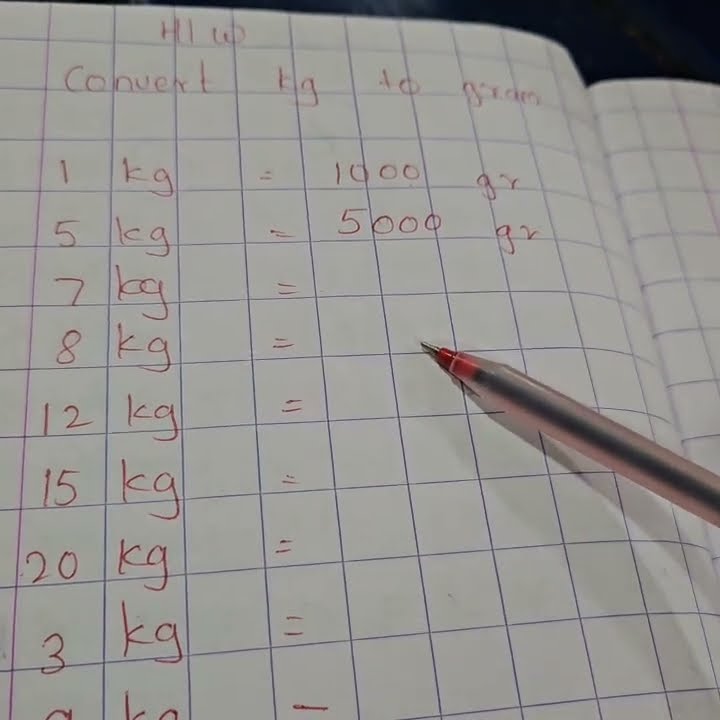 H/w
Convert kg to gram
1 kg = 1000 gr
5 kg = 5000 gr
7 kg =
8 kg =
12 kg =
15 kg =
20 kg =
3 kg =
kg